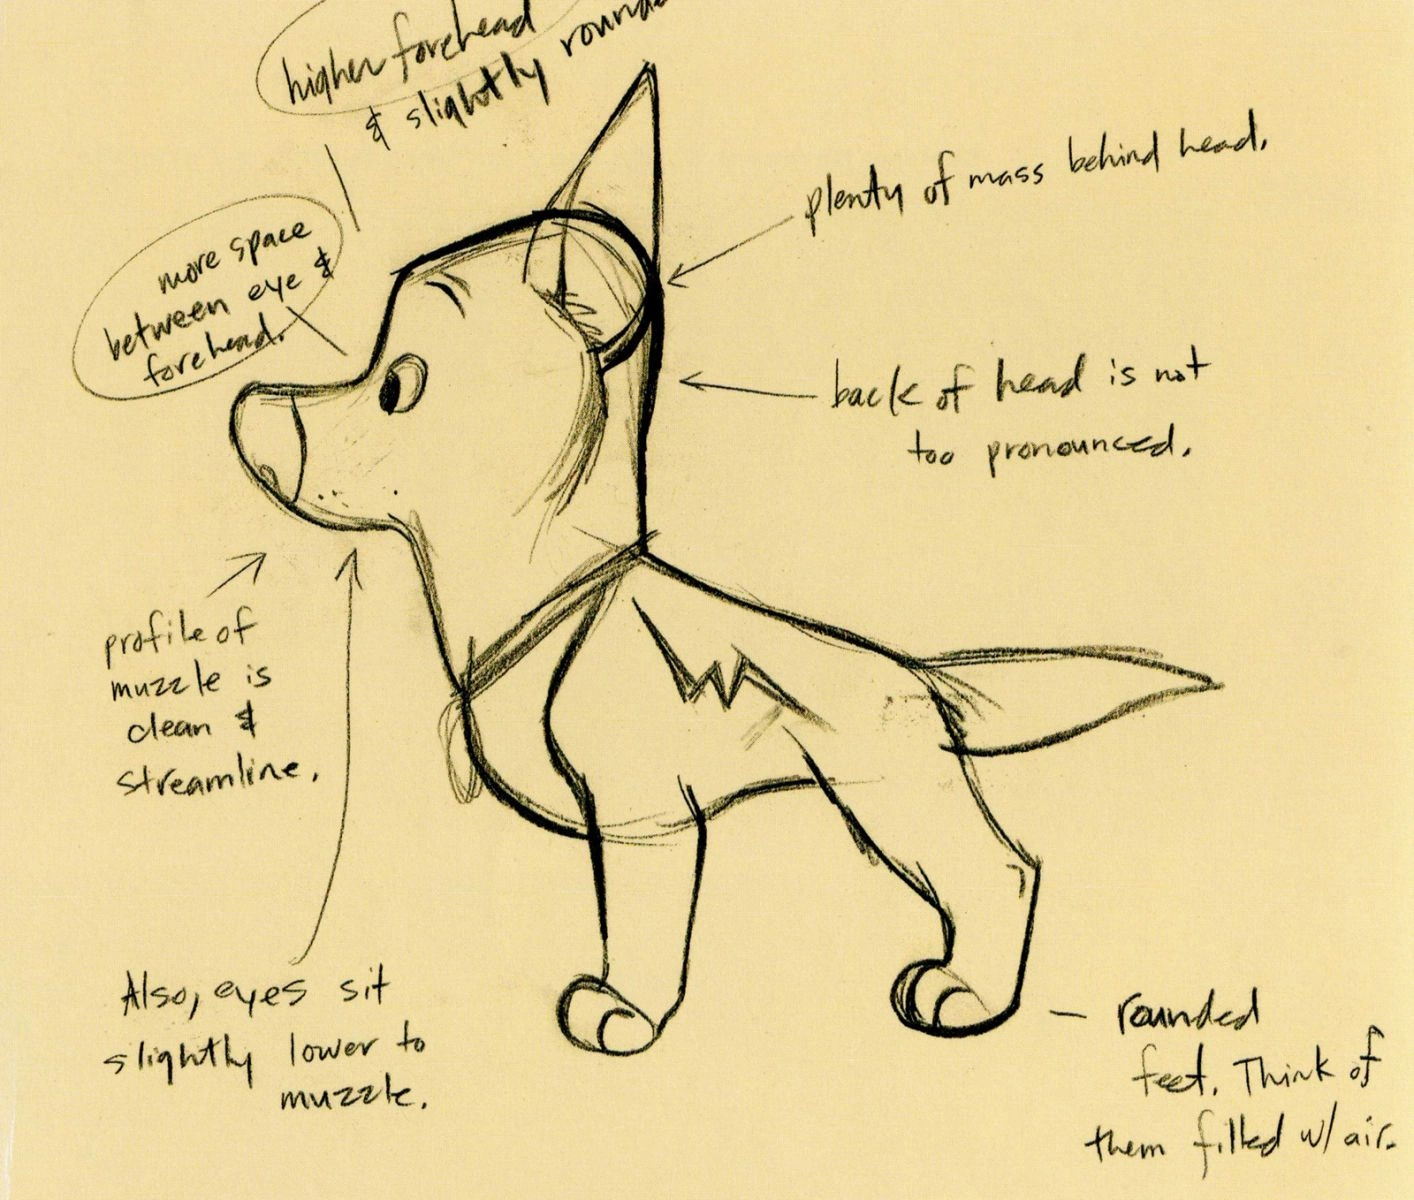 higher forehead
& slightly
plenty of mass behind head.
more space
between eye &
forehead.
back of head is not
too pronounced.
profile of
muzzle is
clean &
streamline.
Also, eyes sit
slightly lower to
muzzle.
rounded
feet. Think of
them filled w/ air.